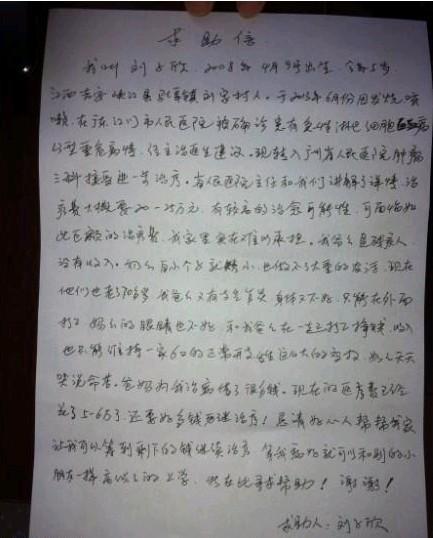 求助信
我叫刘子欣，2008年4月9号出生，今年5岁，
江西吉安峡江县砚溪镇刘家村人。于2013年6月份因发烧咳
嗽，在广东江门市人民医院被确诊患有急性淋巴细胞白血病
L3型重危病情，经主治医生建议。现转入广州省人民医院肿瘤
三科接受进一步治疗。省人民医院主任和我们讲解了详情，治
疗费大概要20—25万元，有较高的治愈可能性，可面临如
此巨额的治疗费，我家里实在难以承担。我爷爷是残疾人，
没有收入。奶奶身小个子就精小，也做不了太重的农活，现在
他们也老了70多岁，我爸爸又有身体又不好，只能在外面
打工，妈妈的眼睛也不好，和我爸爸在一起打工挣钱，收入
也只能维持一家6口的正常开支
哭说命苦。爸妈为我治病借了很多钱。现在的医药费已经
花了5-6万，还要好多钱继续治疗！恳请好心人帮帮我家
让我可以筹到剩下的钱继续治疗，等我病好就可以和别的小
朋友一样高高兴兴的上学，我在此寻求帮助！谢谢！
求助人：刘子欣